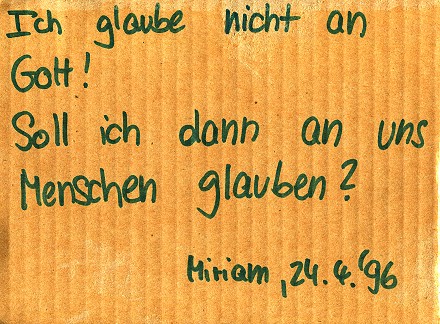 Ich glaube nicht an
Gott!
Soll ich dann an uns
Menschen glauben?
Miriam, 24.4.'96